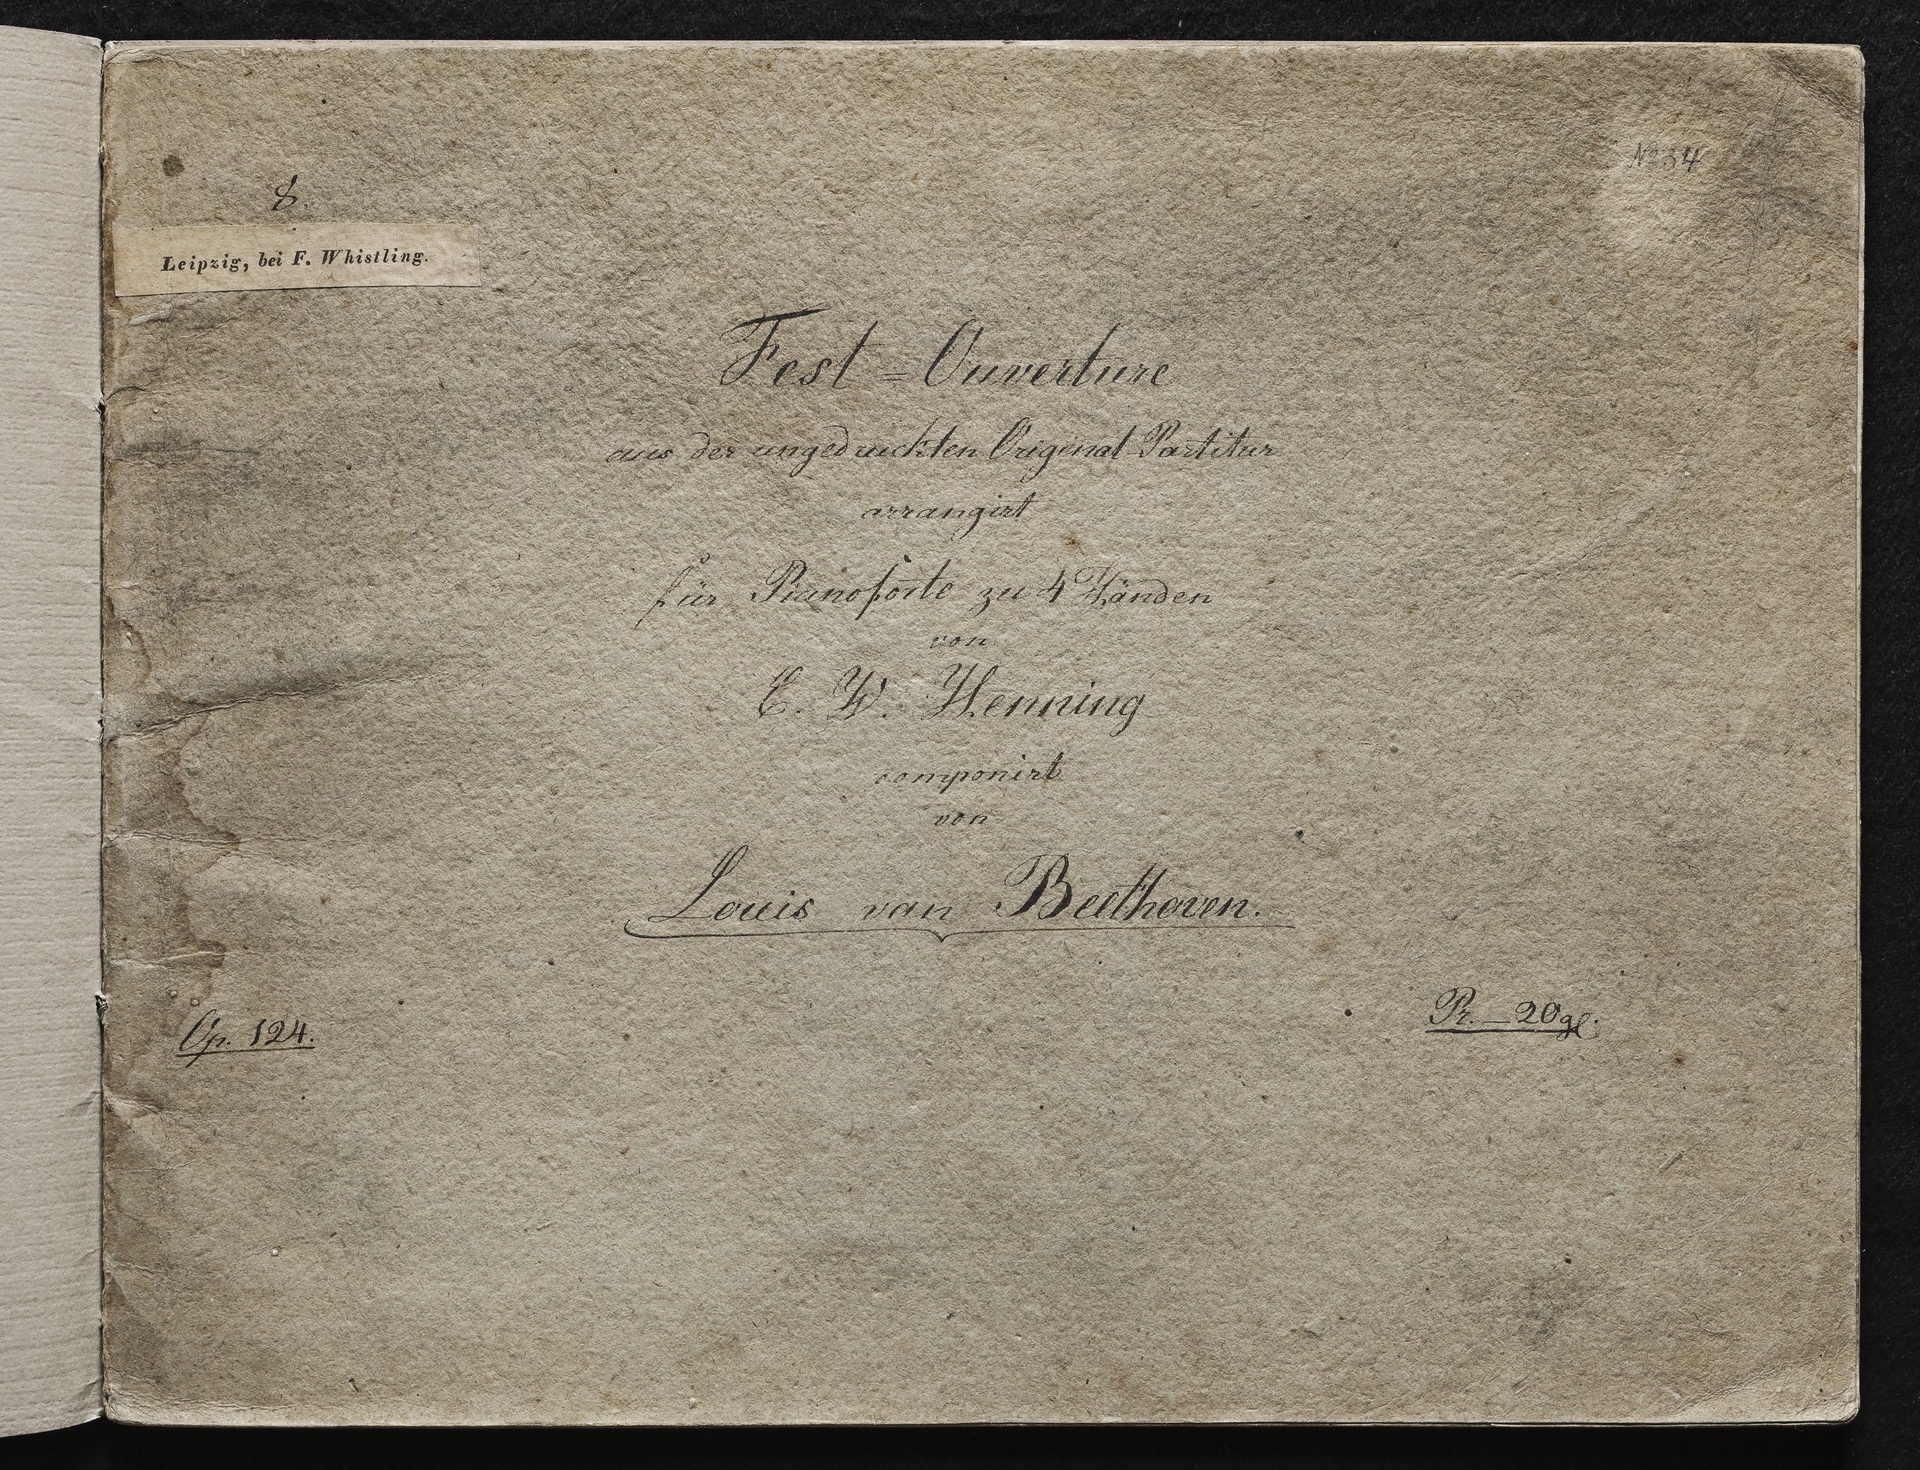 No 34
8.
Leipzig, bei F. Whistling.
Fest=Ouverture
aus der ungedruckten Original Partitur
arrangirt
für Pianoforte zu 4 Händen
von
C. W. Henning
componirt
von
Louis van Beethoven.
Op. 124.
Pr. _ 20 gl.